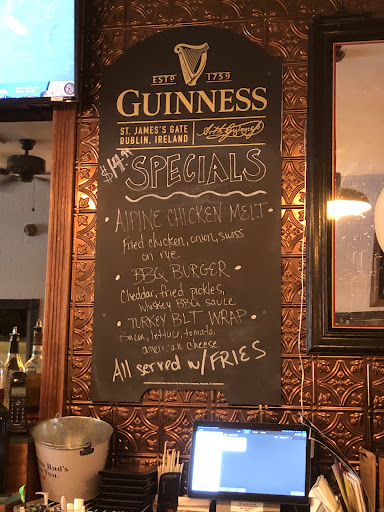 ESTD 1759
GUINNESS
ST. JAMES'S GATE
DUBLIN, IRELAND
$14.99
SPECIALS
• ALPINE CHICKEN MELT •
Fried chicken, onion, swiss
on rye.
• BBQ BURGER •
Cheddar, fried pickles,
whiskey BBQ sauce
• TURKEY BLT WRAP •
Bacon, lettuce, tomato,
american cheese
All served w/ FRIES
Bud's
You.